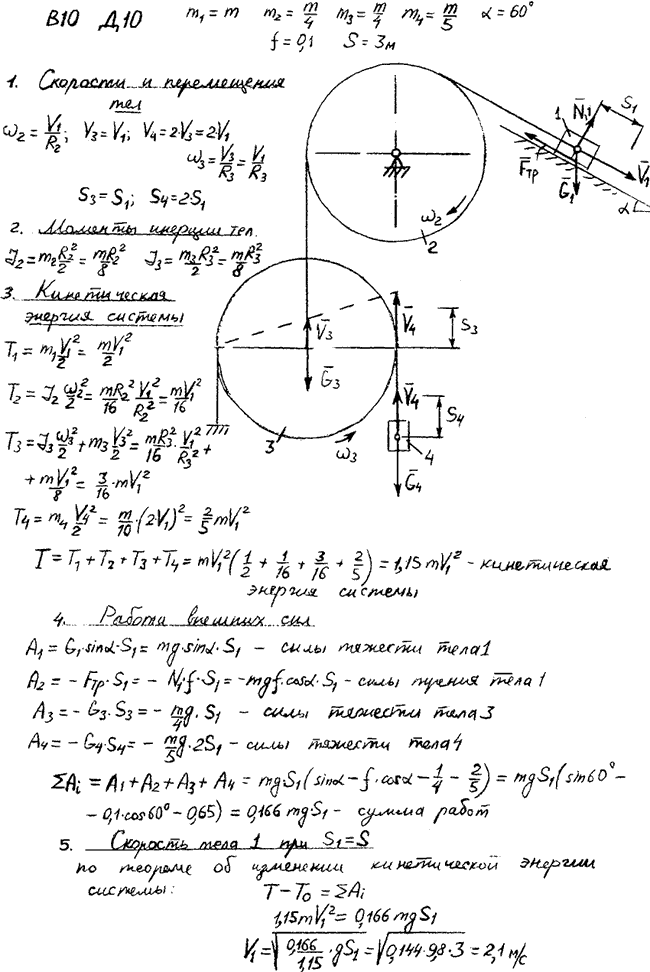 В10 Д.10 m₁ = m m₂ = m/4 m₃ = m/4 m₄ = m/5 α = 60°
f = 0,1 S = 3м
1. Скорости и перемещения
тел
ω₂ = V₁/R₂; V₃ = V₁; V₄ = 2·V₃ = 2V₁
ω₃ = V₃/R₃ = V₁/R₃
S₃ = S₁; S₄ = 2·S₁
2. Моменты инерции тел.
J₂ = m₂R₂²/2 = mR₂²/8 J₃ = m₃R₃²/2 = mR₃²/8
3. Кинетическая
энергия системы
T₁ = m₁V₁²/2 = mV₁²/2
T₂ = J₂ω₂²/2 = mR₂²/16 V₁²/R₂² = mV₁²/16
T₃ = J₃ω₃²/2 + m₃V₃²/2 = mR₃²/16 · V₁²/R₃² +
+ mV₁²/8 = 3/16 · mV₁²
T₄ = m₄V₄²/2 = m/10 · (2·V₁)² = 2/5 mV₁²
T = T₁ + T₂ + T₃ + T₄ = mV₁²(1/2 + 1/16 + 3/16 + 2/5) = 1,15 mV₁² - кинетическая
энергия системы
N̄₁
S₁
1
F̄тр
Ḡ₁
V̄₁
α
ω₂
2
V̄₃
V̄₄
S₃
Ḡ₃
V̄₄
S₄
3
ω₃
4
Ḡ₄
4. Работа внешних сил
A₁ = G₁·sinα·S₁ = mg·sinα·S₁ - силы тяжести тела 1
A₂ = - Fтр·S₁ = - N₁·f·S₁ = -mgf·cosα·S₁ - силы трения тела 1
A₃ = - G₃·S₃ = - m/4 g·S₁ - силы тяжести тела 3
A₄ = - G₄·S₄ = - m/5 g·2S₁ - силы тяжести тела 4
ΣAᵢ = A₁ + A₂ + A₃ + A₄ = mgS₁(sinα - f·cosα - 1/4 - 2/5) = mgS₁(sin60° -
- 0,1·cos60° - 0,65) = 0,166 mgS₁ - сумма работ
5. Скорость тела 1 при S₁ = S
по теореме об изменении кинетической энергии
системы: T - T₀ = ΣAᵢ
1,15mV₁² = 0,166 mgS₁
V₁ = √(0,166/1,15 · gS₁) = √(0,144·9,8·3) = 2,1 м/с